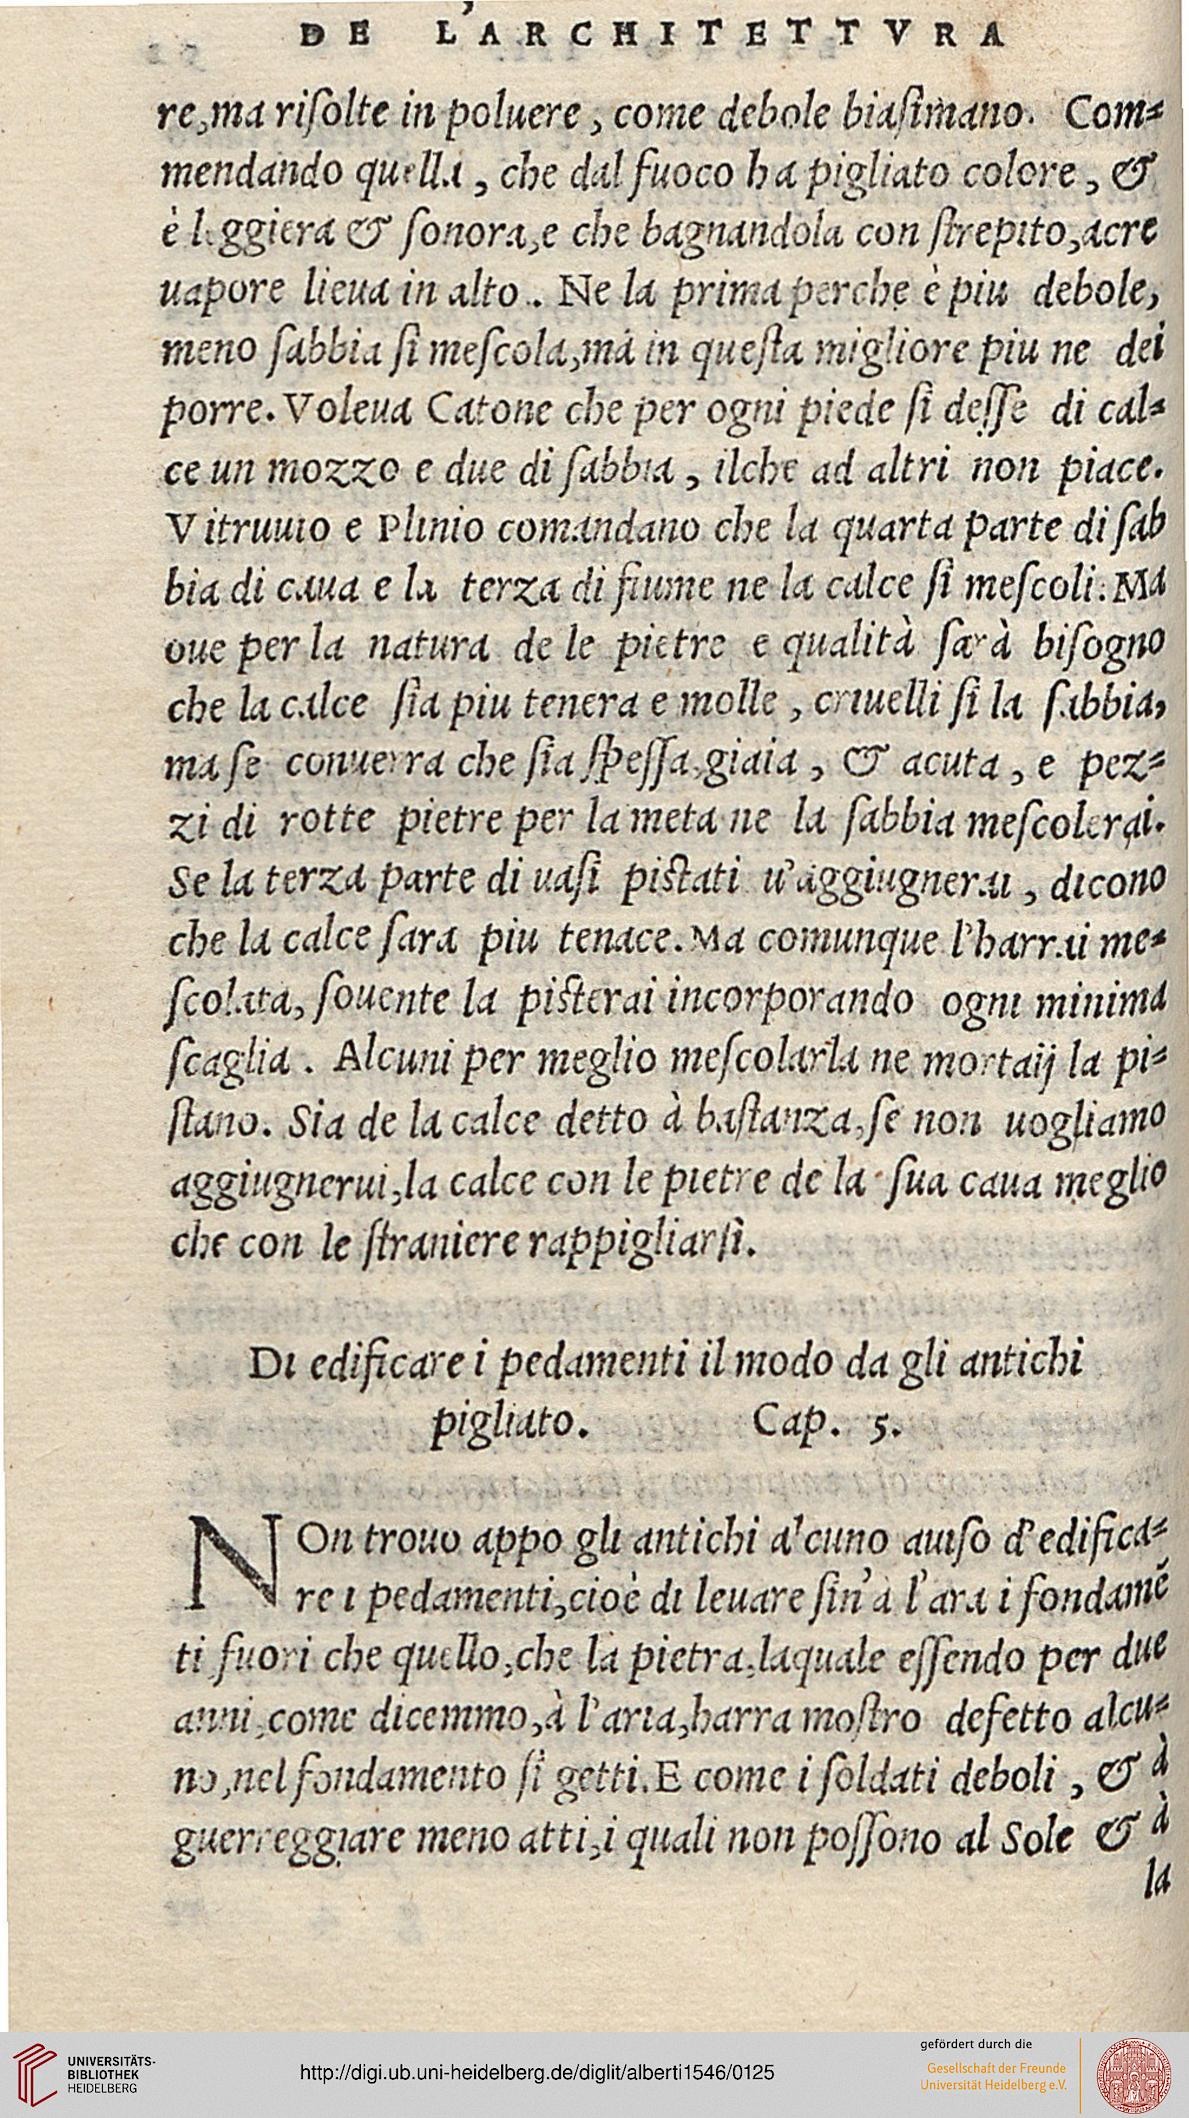 DE L'ARCHITETTVRA
re,ma riſolte in poluere, come debole biaſimano. Com-
mendando quella, che dal fuoco ha pigliato colore, &
è leggiera & ſonora,e che bagnandola con ſtrepito,acre
uapore lieua in alto. Ne la prima perche è piu debole,
meno ſabbia ſi meſcola,ma in queſta migliore piu ne dei
porre. Voleua Catone che per ogni piede ſi deſſe di cal-
ce un mozzo e due di ſabbia, ilche ad altri non piace.
Vitruuio e Plinio comandano che la quarta parte di ſab
bia di caua e la terza di fiume ne la calce ſi meſcoli: Ma
oue per la natura de le pietre e qualità ſarà biſogno
che la calce ſia piu tenera e molle, criuelli ſi la ſabbia,
ma ſe conuerra che ſia ſpeſſa,giaia, & acuta, e pez-
zi di rotte pietre per la meta ne la ſabbia meſcolerai.
Se la terza parte di uaſi piſtati u'aggiugnerai, dicono
che la calce ſara piu tenace. Ma comunque l'harrai me-
ſcolata, ſouente la piſterai incorporando ogni minima
ſcaglia. Alcuni per meglio meſcolarla ne mortaij la pi-
ſtano. Sia de la calce detto à baſtanza,ſe non uogliamo
aggiugnerui,la calce con le pietre de la ſua caua meglio
che con le ſtraniere rappigliarſi.
Di edificare i pedamenti il modo da gli antichi
pigliato. Cap. 5.
NOn trouo appo gli antichi alcuno auiſo d'edifica-
re i pedamenti,cioè di leuare ſin'a l'ara i fondamẽ
ti fuori che quello,che la pietra,laquale eſſendo per due
anni,come dicemmo,à l'aria,harra moſtro defetto alcu-
no,nel fondamento ſi getti. E come i ſoldati deboli, & à
guerreggiare meno atti,i quali non poſſono al Sole & à
la
UNIVERSITÄTS-
BIBLIOTHEK
HEIDELBERG
http://digi.ub.uni-heidelberg.de/diglit/alberti1546/0125
gefördert durch die
Gesellschaft der Freunde
Universität Heidelberg e.V.